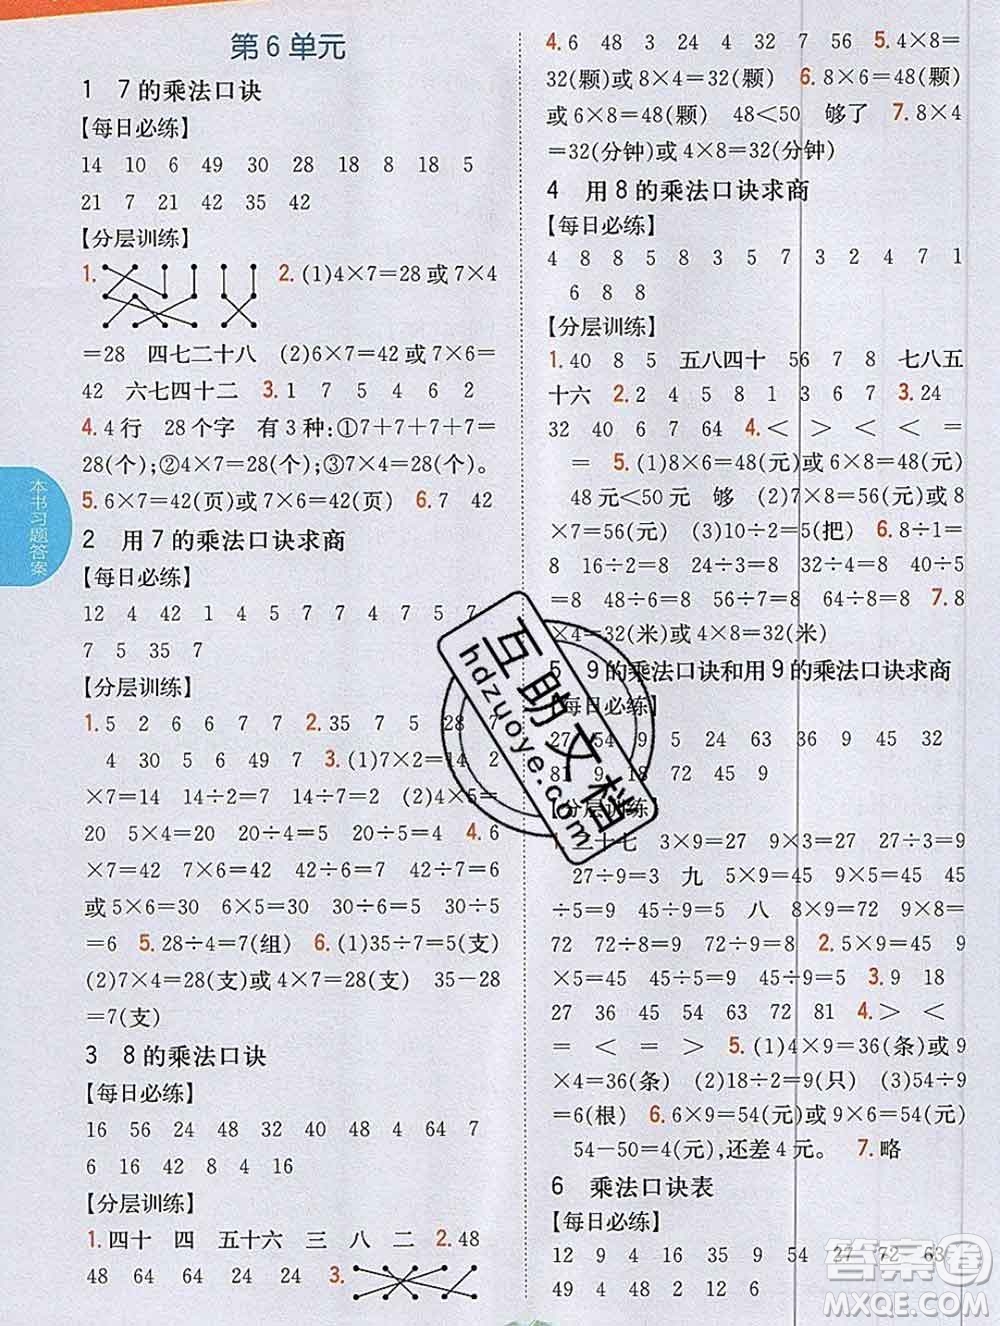 第6单元
1 7的乘法口诀
【每日必练】
14 10 6 49 30 28 18 8 18 5
21 7 21 42 35 42
【分层训练】
1. 2.(1)4×7=28或7×4
=28 四七二十八 (2)6×7=42或7×6=
42 六七四十二 3.1 7 5 4 6 2
4.4行 28个字 有3种:①7+7+7+7=
28(个);②4×7=28(个);③7×4=28(个)。
5.6×7=42(页)或7×6=42(页) 6.7 42
2 用7的乘法口诀求商
【每日必练】
12 4 42 1 4 5 7 7 4 7 5 7
7 5 35 7
【分层训练】
1.5 2 6 6 7 7 2.35 7 5 28 7
4 2 4 6 49 7 3.(1)7×2=14 2
×7=14 14÷2=7 14÷7=2 (2)4×5=
20 5×4=20 20÷4=5 20÷5=4 4.6
×7=42 7×6=42 42÷6=7 42÷7=6
或5×6=30 6×5=30 30÷6=5 30÷5
=6 5.28÷4=7(组) 6.(1)35÷7=5(支)
(2)7×4=28(支)或4×7=28(支) 35-28
=7(支)
3 8的乘法口诀
【每日必练】
16 56 24 48 32 40 48 4 64 7
6 16 42 8 4 16
【分层训练】
1.四十 四 五十六 三 八 二 2.48
48 64 64 24 24 3.
4.6 48 3 24 4 32 7 56 5.4×8=
32(颗)或8×4=32(颗) 6.8×6=48(颗)
或6×8=48(颗) 48<50 够了 7.8×4
=32(分钟)或4×8=32(分钟)
4 用8的乘法口诀求商
【每日必练】
4 8 8 5 8 3 5 7 3 2 4 7 1
6 8 8
【分层训练】
1.40 8 5 五八四十 56 7 8 七八五
十六 2.2 4 5 8 1 3 6 7 3.24
32 40 6 7 64 4.< > < < =
= 5.(1)8×6=48(元)或6×8=48(元)
48元<50元 够 (2)7×8=56(元)或8
×7=56(元) (3)10÷2=5(把) 6.8÷1=
8 16÷2=8 24÷3=8 32÷4=8 40÷5
=8 48÷6=8 56÷7=8 64÷8=8 7.8
×4=32(米)或4×8=32(米)
5 9的乘法口诀和用9的乘法口诀求商
【每日必练】
27 54 9 5 24 63 36 9 45 32
81 9 18 72 45 9
【分层训练】
1.二十七 3×9=27 9×3=27 27÷3=9
27÷9=3 九 5×9=45 9×5=45 45
÷5=9 45÷9=5 八 8×9=72 9×8=
72 72÷8=9 72÷9=8 2.5×9=45 9
×5=45 45÷5=9 45÷9=5 3.9 18
27 36 45 54 63 72 81 4.> <
= < = > 5.(1)4×9=36(条)或9
×4=36(条) (2)18÷2=9(只) (3)54÷9
=6(根) 6.6×9=54(元)或9×6=54(元)
54-50=4(元),还差4元。 7.略
6 乘法口诀表
【每日必练】
12 9 4 16 35 9 54 27 72 63
49 4 48 2 12 6
本书习题答案
互助文档
hdzuoye.com
答案圈
MXQE.COM